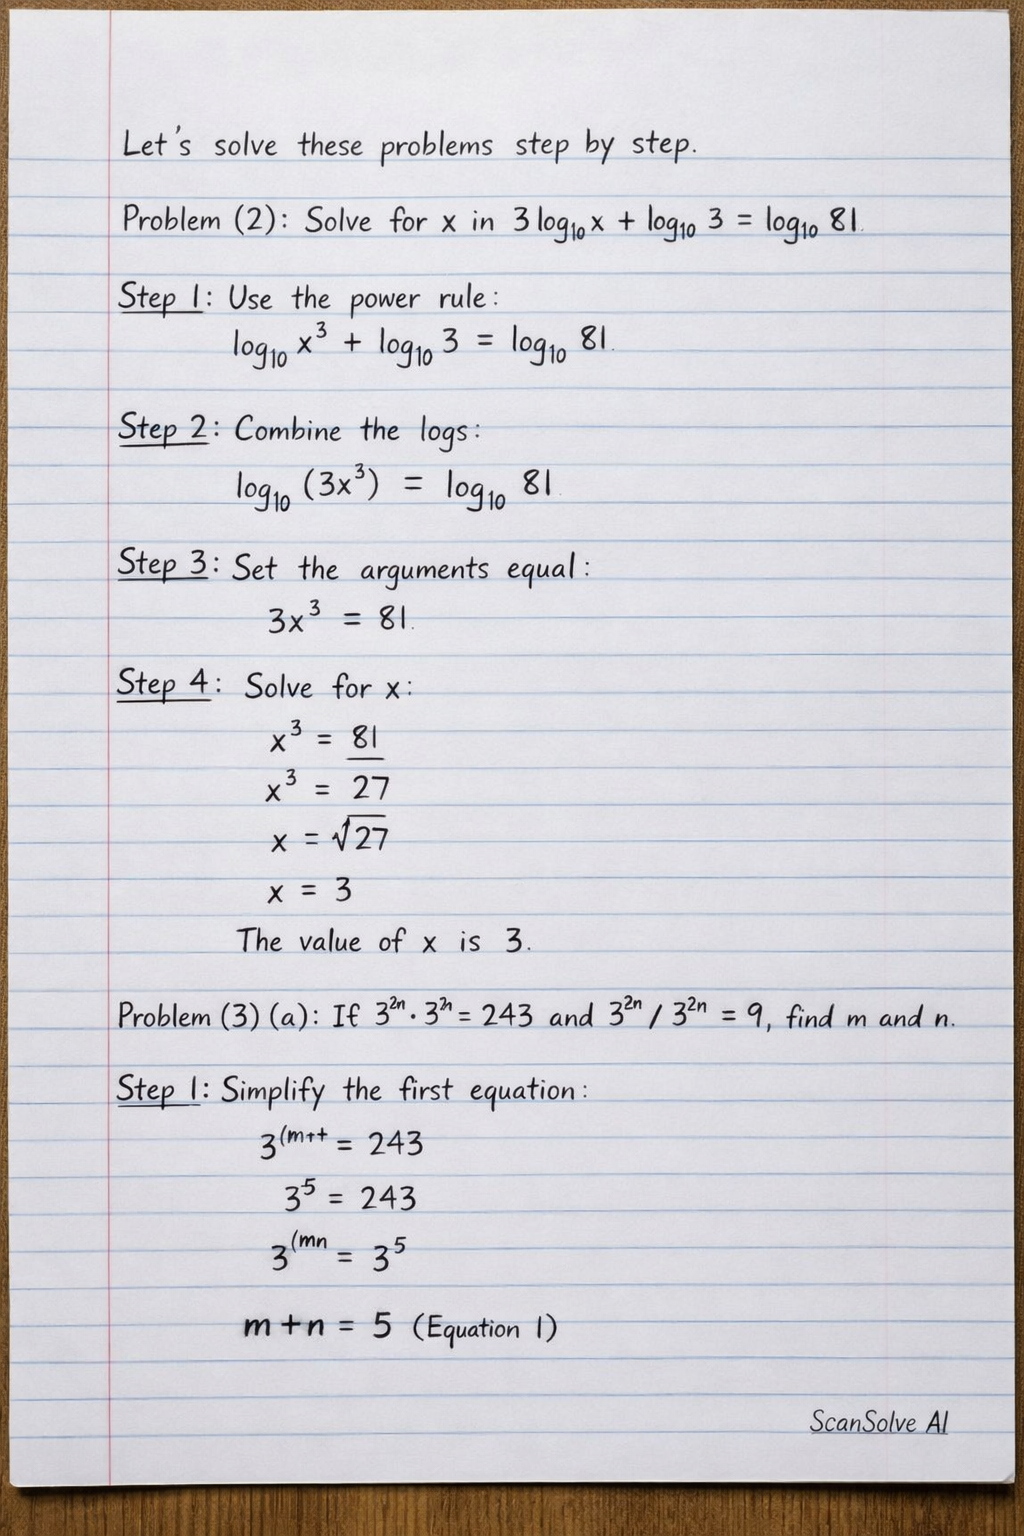 Let's solve these problems step by step.
Problem (2): Solve for x in 3 log₁₀ x + log₁₀ 3 = log₁₀ 81.
Step 1: Use the power rule:
log₁₀ x³ + log₁₀ 3 = log₁₀ 81.
Step 2: Combine the logs:
log₁₀ (3x³) = log₁₀ 81.
Step 3: Set the arguments equal:
3x³ = 81.
Step 4: Solve for x:
x³ = 81
x³ = 27
x = √27
x = 3
The value of x is 3.
Problem (3) (a): If 3²ⁿ · 3²ⁿ = 243 and 3²ⁿ / 3²ⁿ = 9, find m and n.
Step 1: Simplify the first equation:
3⁽ᵐ⁺⁺ = 243
3⁵ = 243
3⁽ᵐⁿ = 3⁵
m + n = 5 (Equation 1)
ScanSolve AI